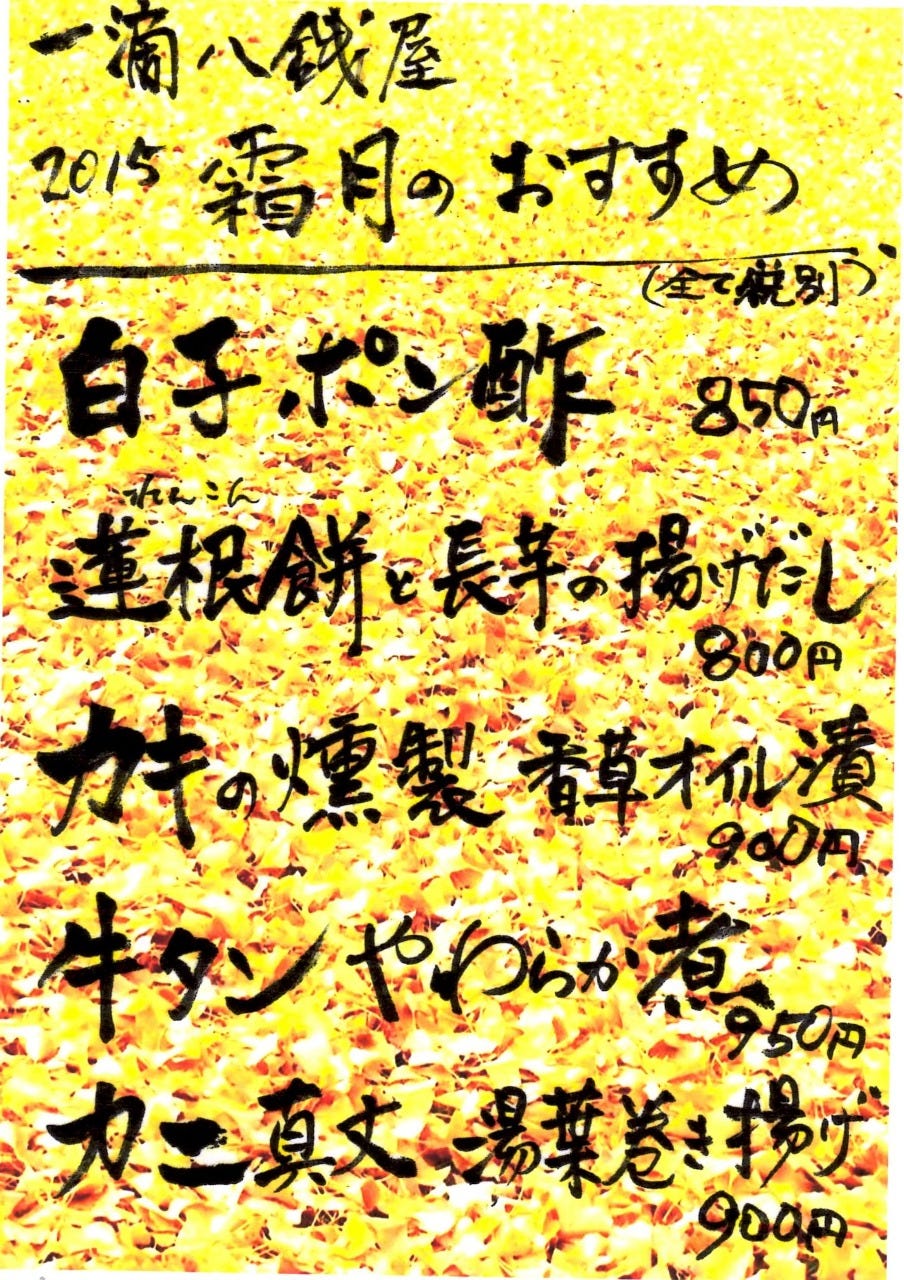 一滴八銭屋
2015 霜月のおすすめ
(全て税別)
白子ポン酢 850円
れんこん
蓮根餅と長芋の揚げだし
800円
カキの燻製 香草オイル漬
900円
牛タン やわらか煮
950円
カニ真丈 湯葉巻き揚げ
900円